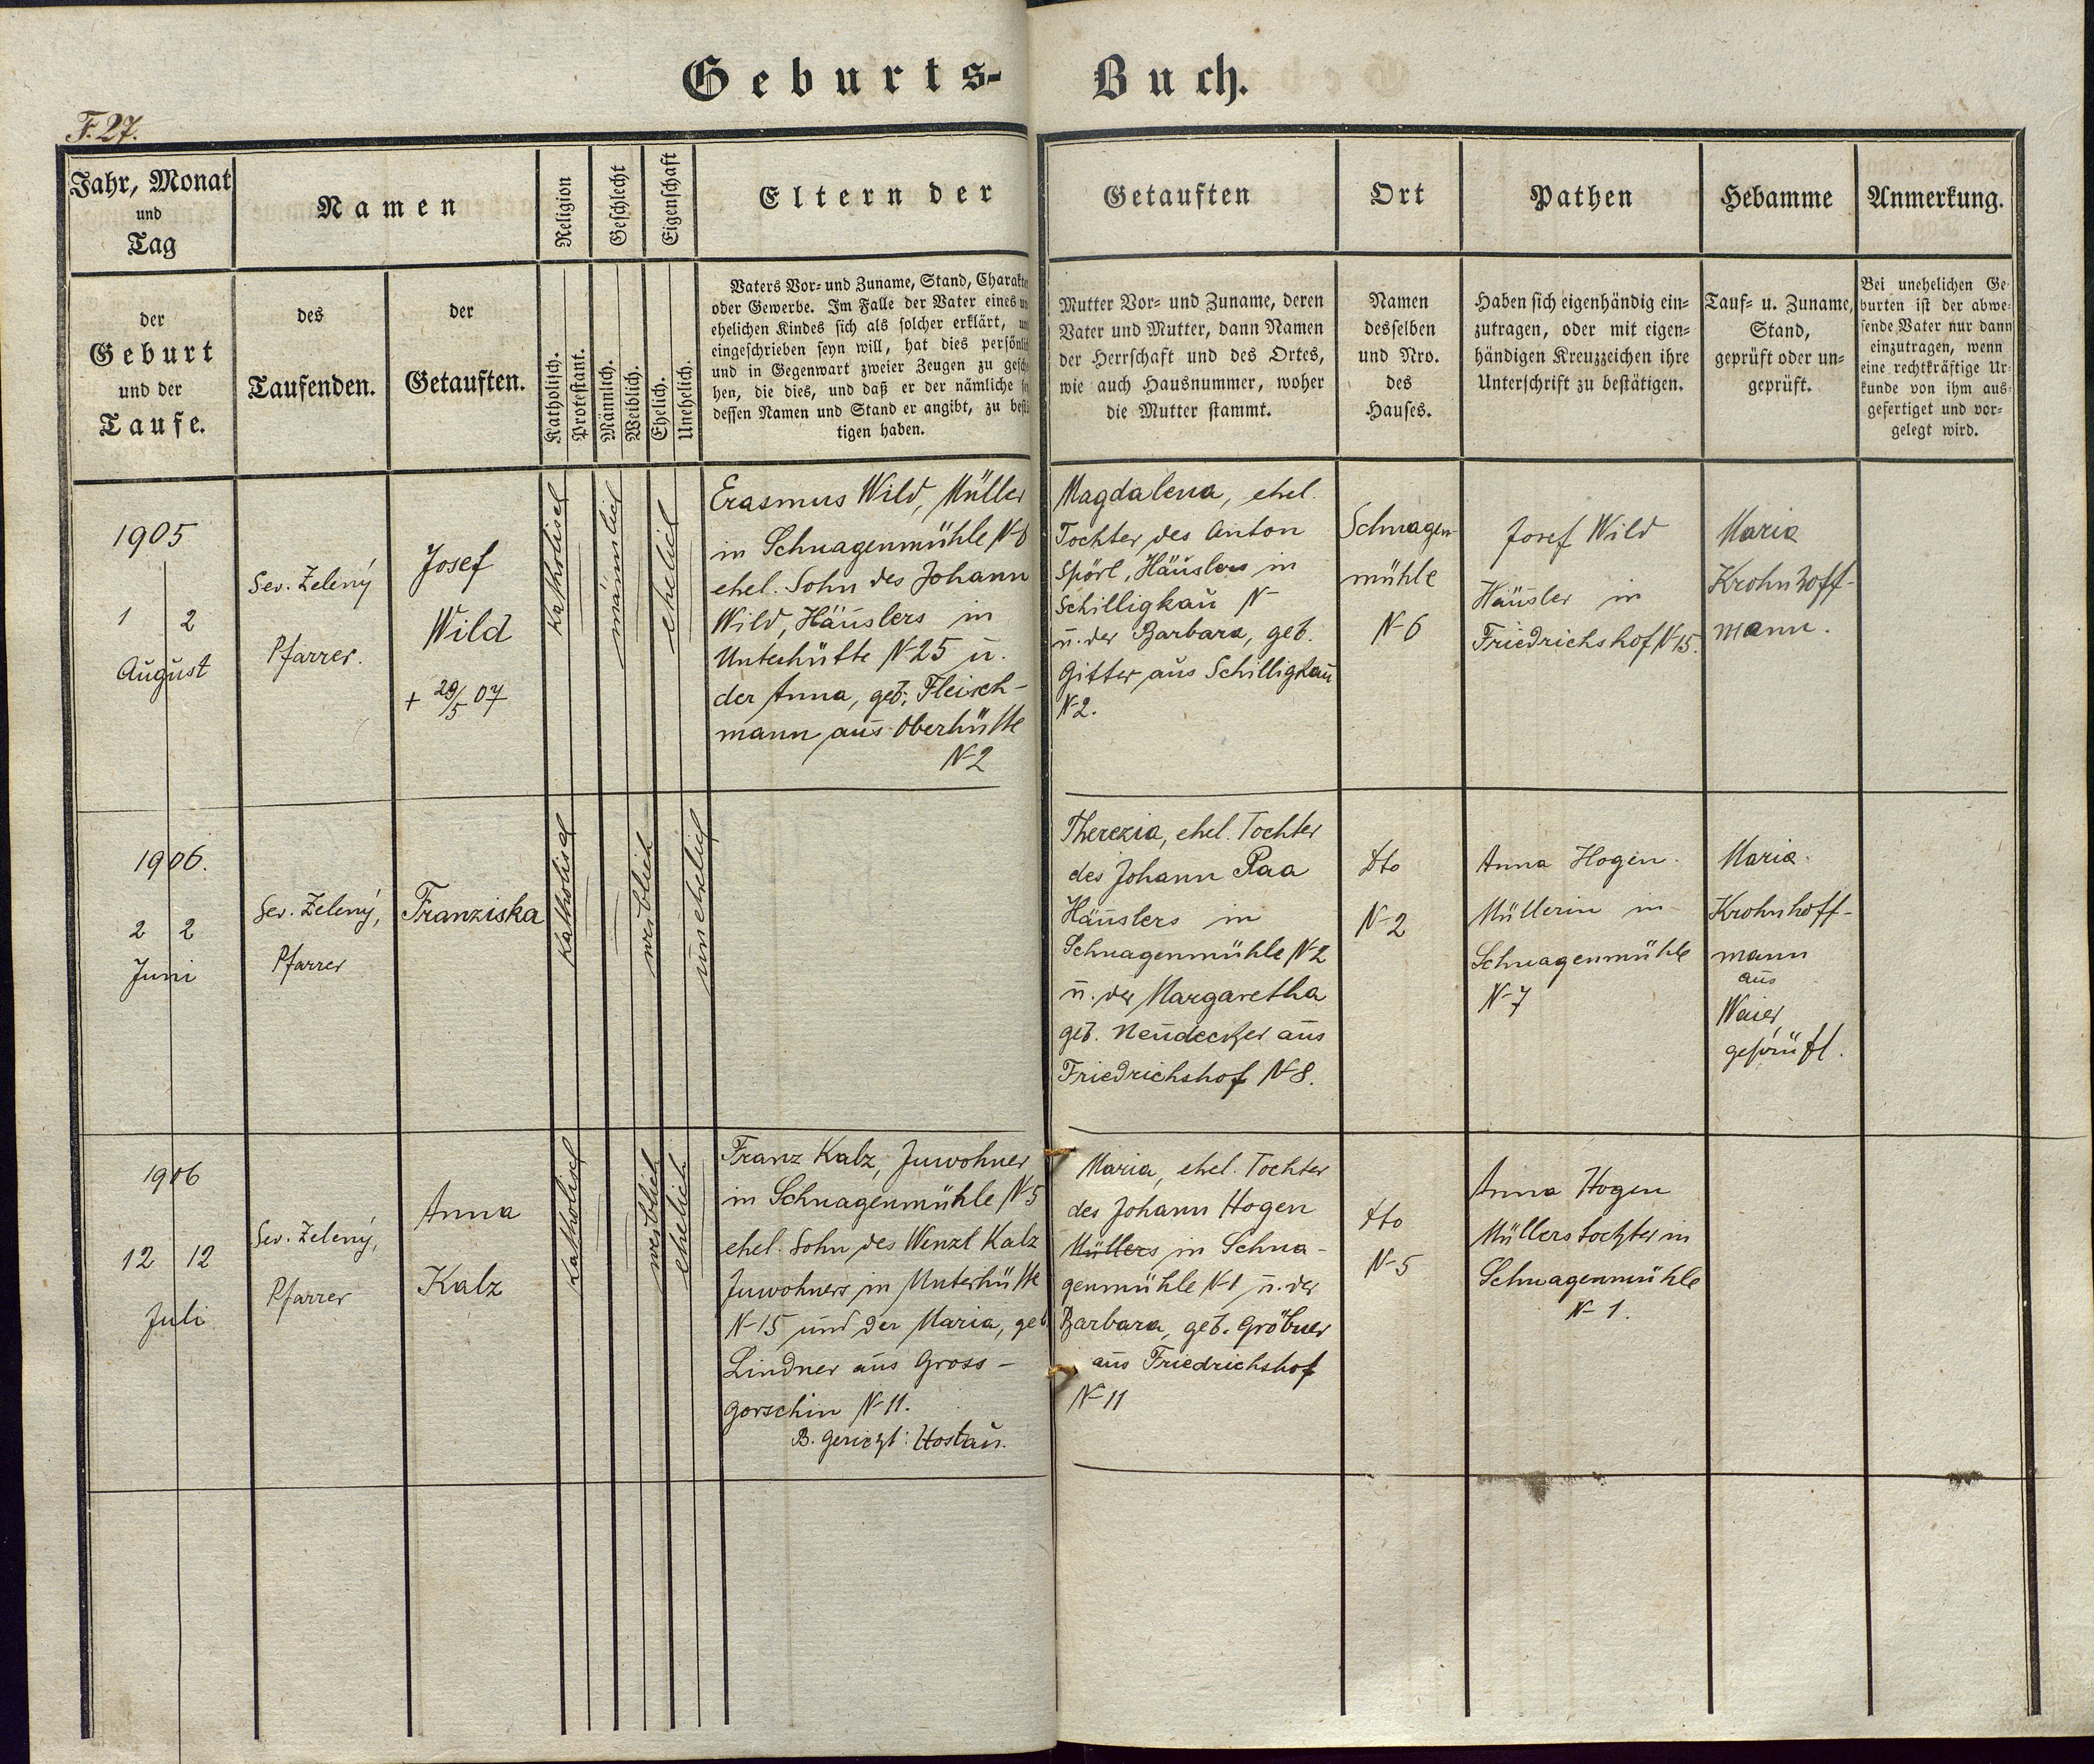 Geburts-Buch.
F. 27.
Jahr, Monat
und
Tag
Namen
Religion
Geschlecht
Eigenschaft
Eltern der Getauften
Ort
Pathen
Hebamme
Anmerkung.
der
Geburt
und der
Taufe.
des
Taufenden.
der
Getauften.
Katholisch.
Protestant.
Männlich.
Weiblich.
Ehelich.
Unehelich.
Vaters Vor- und Zuname, Stand, Charakte
oder Gewerbe. Im Falle der Vater eines un
ehelichen Kindes sich als solcher erklärt, un
eingeschrieben seyn will, hat dies persönlic
und in Gegenwart zweier Zeugen zu gesche
hen, die dies, und daß er der nämliche se
dessen Namen und Stand er angibt, zu bestä
tigen haben.
Mutter Vor- und Zuname, deren
Vater und Mutter, dann Namen
der Herrschaft und des Ortes,
wie auch Hausnummer, woher
die Mutter stammt.
Namen
desselben
und Nro.
des
Hauses.
Haben sich eigenhändig ein-
zutragen, oder mit eigen-
händigen Kreuzzeichen ihre
Unterschrift zu bestätigen.
Tauf- u. Zuname,
Stand,
geprüft oder un-
geprüft.
Bei unehelichen Ge-
burten ist der abwe-
sende Vater nur dann
einzutragen, wenn
eine rechtkräftige Ur-
kunde von ihm aus-
gefertiget und vor-
gelegt wird.
1905
1 2
August
Sev. Zelený
Pfarrer.
Josef
Wild
+ 29/5 07
katholisch
männlich
ehelich
Erasmus Wild, Müller
in Schnagenmühle N-6
ehel. Sohn des Johann
Wild, Häuslers in
Unterhütte N-25 u.
der Anna, geb. Fleisch-
mann aus Oberhütte
N-2
Magdalena, ehel.
Tochter des Anton
Spörl, Häuslers in
Schilligkau N-
u. der Barbara, geb.
Gitter aus Schilligkau
N-2.
Schnagen-
mühle
N-6
Josef Wild
Häusler in
Friedrichshof N-15.
Maria
Krohnhoff-
mann.
1906.
2 2
Juni
Sev. Zelený,
Pfarrer
Franziska
katholisch
weiblich
unehelich
Therezia, ehel. Tochter
des Johann Raa
Häuslers in
Schnagenmühle N-2
u. der Margaretha
geb. Neudecker aus
Friedrichshof N-8.
dto
N-2
Anna Hogen
Müllerin in
Schnagenmühle
N-7
Maria
Krohnhoff-
mann
aus
Waier,
geprüft.
1906
12 12
Juli
Sev. Zelený,
Pfarrer
Anna
Kalz
katholisch
weiblich
ehelich
Franz Kalz, Inwohner
in Schnagenmühle N-5
ehel. Sohn des Wenzl Kalz
Inwohners in Unterhütte
N-15 und der Maria, geb
Lindner aus Gross-
gorschin N-11.
B. Gericht: Hostau.
Maria, ehel. Tochter
des Johann Hogen
Müllers in Schna-
genmühle N-1 u. der
Barbara, geb. Gröbner
aus Friedrichshof
N-11
dto
N-5
Anna Hogen
Müllerstochter in
Schnagenmühle
N-1.